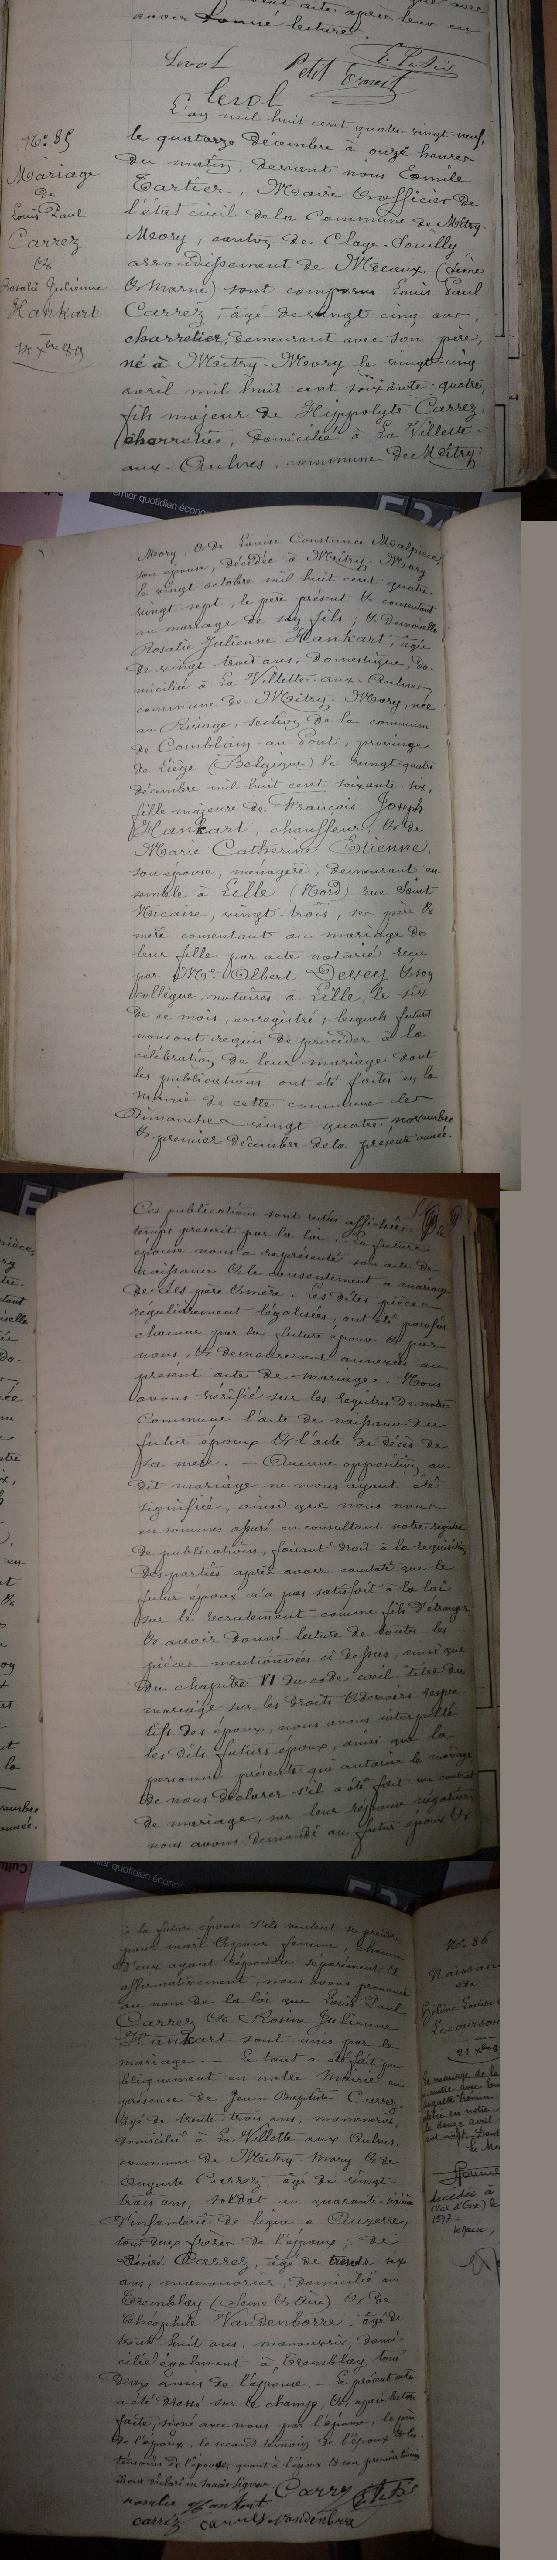 avoir donné lecture.
Lerol Petit Ernest
Lerol
L'an mil huit cent quatre-vingt-neuf,
N°: 85
Mariage
de
Louis Paul
Carrez
&
Rosalie Julienne
Hankart
le quatorze décembre à onze heures
du matin, devant nous Emile
Tartier, Maire & officier de
l'état civil de la Commune de Mitry-
Mory, canton de Claye-Souilly
arrondissement de Meaux (Seine
& Marne) sont comparu Louis Paul
Carrez, âgé de vingt cinq ans,
charretier, demeurant avec son père,
né à Mitry-Mory le vingt-cinq
avril mil huit cent soixante-quatre,
fils majeur de Hippolyte Carrez,
charretier, domicilié à La Villette-
aux-Aulnes, commune de Mitry-
Mory, & de Louise Constance
son épouse, décédée à Mitry-Mory
le vingt octobre mil huit cent quatre-
vingt sept, le père présent & consentant
au mariage de son fils ; & Demoiselle
Rosalie Julienne Hankart, âgée
de vingt trois ans, domestique, do-
miciliée à La Villette-aux-Aulnes,
commune de Mitry-Mory, née
au Rivage, section de la commune
de Comblain-au-Pont, province
de Liège (Belgique) le vingt-quatre
décembre mil huit cent soixante-six,
fille majeure de François Joseph
Hankart, chauffeur, & de
Marie Catherine Etienne,
son épouse, ménagère, demeurant en-
semble à Lille (Nord) rue Saint
Nicaise, vingt trois, ses père &
mère consentant au mariage de
leur fille par acte notarié reçu
par Me Albert & son
collègue notaires à Lille, le six
de ce mois, enregistré ; lesquels futurs
nous ont requis de procéder à la
célébration de leur mariage dont
les publications ont été faites en la
mairie de cette commune les
Dimanches vingt quatre novembre
& premier décembre de la présente année.
Ces publications sont restées affichées le
temps prescrit par la loi. La future
épouse nous a représenté son acte de
naissance & le consentement à mariage
de ses père & mère. Les dites pièces
régulièrement légalisées, ont été parafées
chacune par la future épouse & par
nous, & demeureront annexées au
présent acte de mariage. Nous
avons vérifié sur les registres de notre
Commune l'acte de naissance du
futur époux & l'acte de décès de
sa mère. — Aucune opposition au
dit mariage ne nous ayant été
signifiée, ainsi que nous nous
en sommes assuré en consultant notre registre
de publications, faisant droit à la réquisition
des parties après avoir constaté que le
futur époux n'a pas satisfait à la loi
sur le recrutement comme fils d'étranger
& avoir donné lecture de toutes les
pièces mentionnées ci dessus, ainsi que
du chapitre VI du code civil titre du
mariage sur les droits & devoirs respec-
tifs des époux, nous avons interpellé
les dits futurs époux, ainsi que la
personne présente qui autorise le mariage
de nous déclarer s'il a été fait un contrat
de mariage, sur leur réponse négative,
nous avons demandé au futur époux &
à la future épouse s'ils veulent se prendre
pour mari & pour femme, chacun
d'eux ayant répondu séparément &
affirmativement, nous avons prononcé
au nom de la loi que Louis Paul
Carrez & Rosine Julienne
Hankart sont unis par le
mariage. — Le tout a été fait pu-
bliquement en notre Mairie en
présence de Jean Baptiste Carrez
âgé de trente-trois ans, manouvrier,
domicilié à La Villette aux Aulnes,
commune de Mitry-Mory & de
Auguste Carrez, âgé de vingt-
trois ans, soldat en quarante-
d'infanterie de ligne à Auxerre,
tous deux frères de l'époux ; de
Désiré Carrez, âgé de trente six
ans, manouvrier, domicilié au
Tremblay (Seine & Oise) & de
Théophile Vandenborre, âgé de
trente huit ans, manouvrier, domi-
cilié également à Tremblay, tous
deux amis de l'épouse. — Le présent acte
a été dressé sur le champ, &, après lecture
faite, signé avec nous par l'épouse, le père
de l'époux, le second témoin de l'époux & les
témoins de l'épouse, quant à l'époux & son premier témoin
ils ont déclaré ne savoir signer.
rosalie Hankart Carrez
carriz carrez vandenborre
N°: 86
Naissance
de